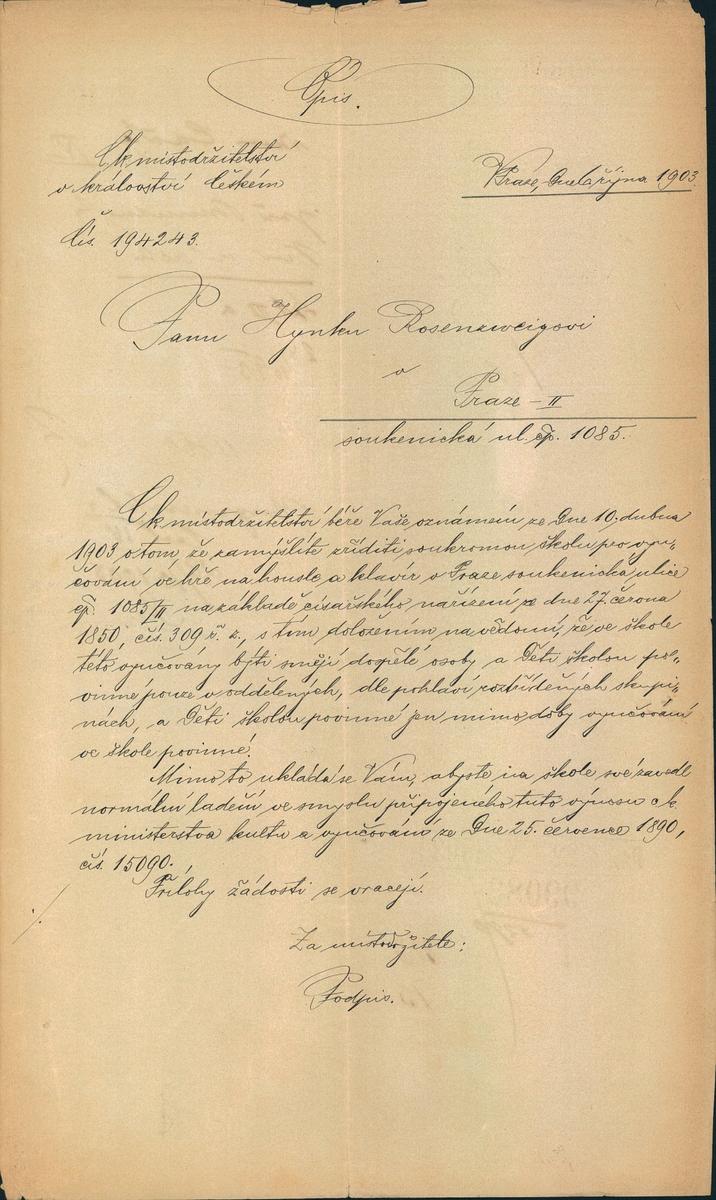 Opis.
C.k. místodržitelství
v království českém
V Praze, dne října 1903.
čís. 194243.
Panu Hynku Rosenzweigovi
v
Praze – II
soukenická ul. čp. 1085.
C.k. místodržitelství béře Vaše oznámení ze dne 10. dubna
1903 o tom, že zamýšlíte zříditi soukromou školu pro vyu-
čování ve hře na housle a klavír v Praze, soukenická ulice
čp. 1085/II na základě císařského nařízení ze dne 27. června
1850, čís. 309 ř. z., s tím doložením na vědomí, že ve škole
této vyučovány býti smějí dospělé osoby a děti školou po-
vinné pouze v oddělených, dle pohlaví roztříděných skupi-
nách, a děti školou povinné jen mimo doby vyučování
ve škole povinné.
Mimo to ukládá se Vám, abyste na škole své zavedl
normální ladění ve smyslu připojeného tuto výnosu c.k.
ministerstva kultu a vyučování ze dne 25. července 1890,
čís. 15090.
Přílohy žádosti se vracejí.
Za místodržitele:
Podpis.